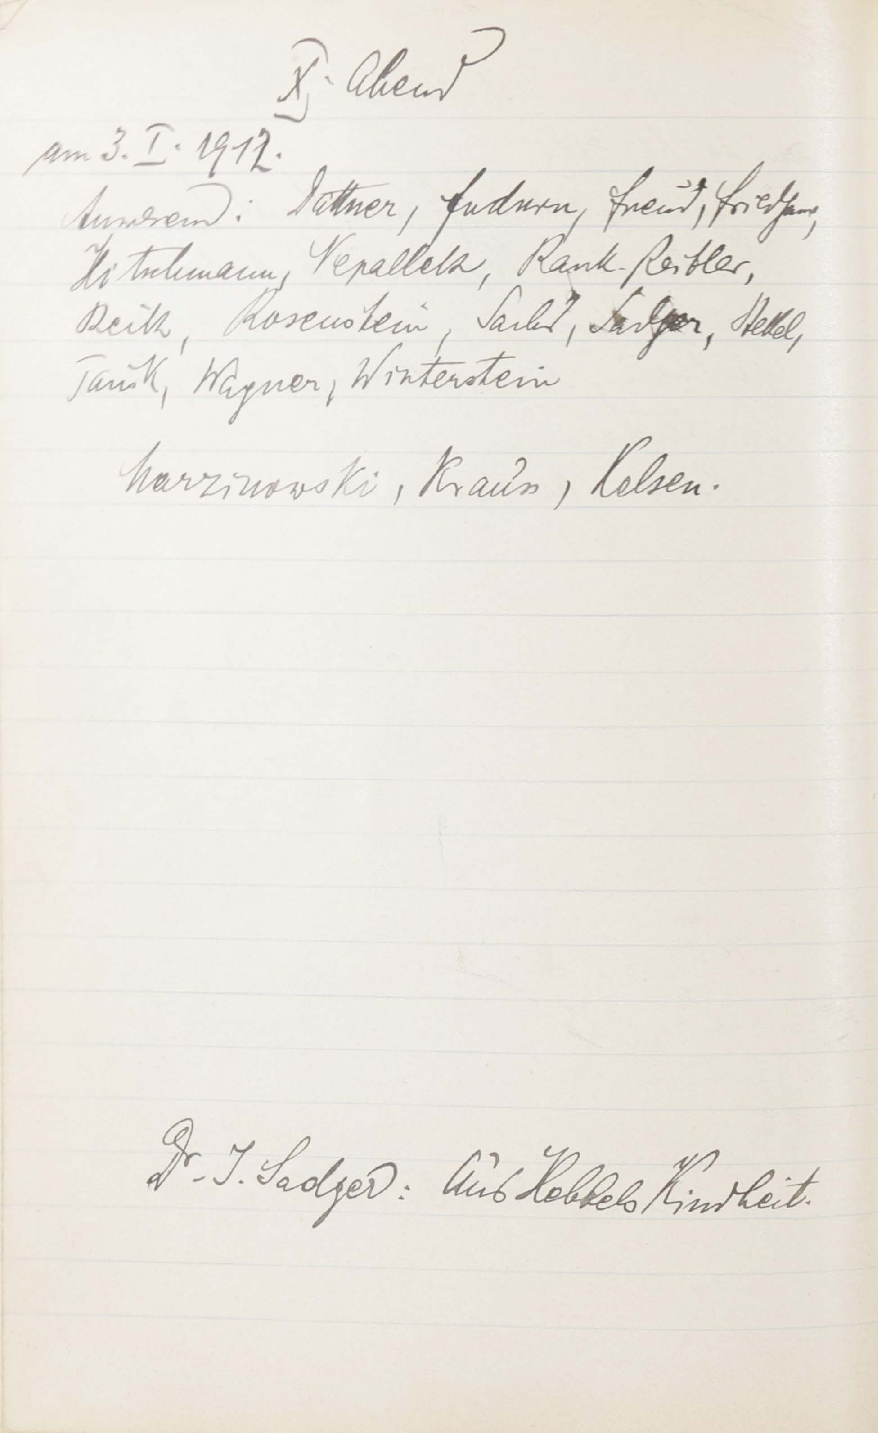 XI. Abend
am 3. I. 1912.
Anwesend: Dattner, Federn, Freud, Friedjung,
Hitschmann, Nepalleck, Rank, Reitler,
Reik, Rosenstein, Sachs, Sadger, Stekel,
Tausk, Wagner, Winterstein
Marzinowski, Krauss, Kelsen.
Dr. I. Sadger: Aus Hebbels Kindheit.